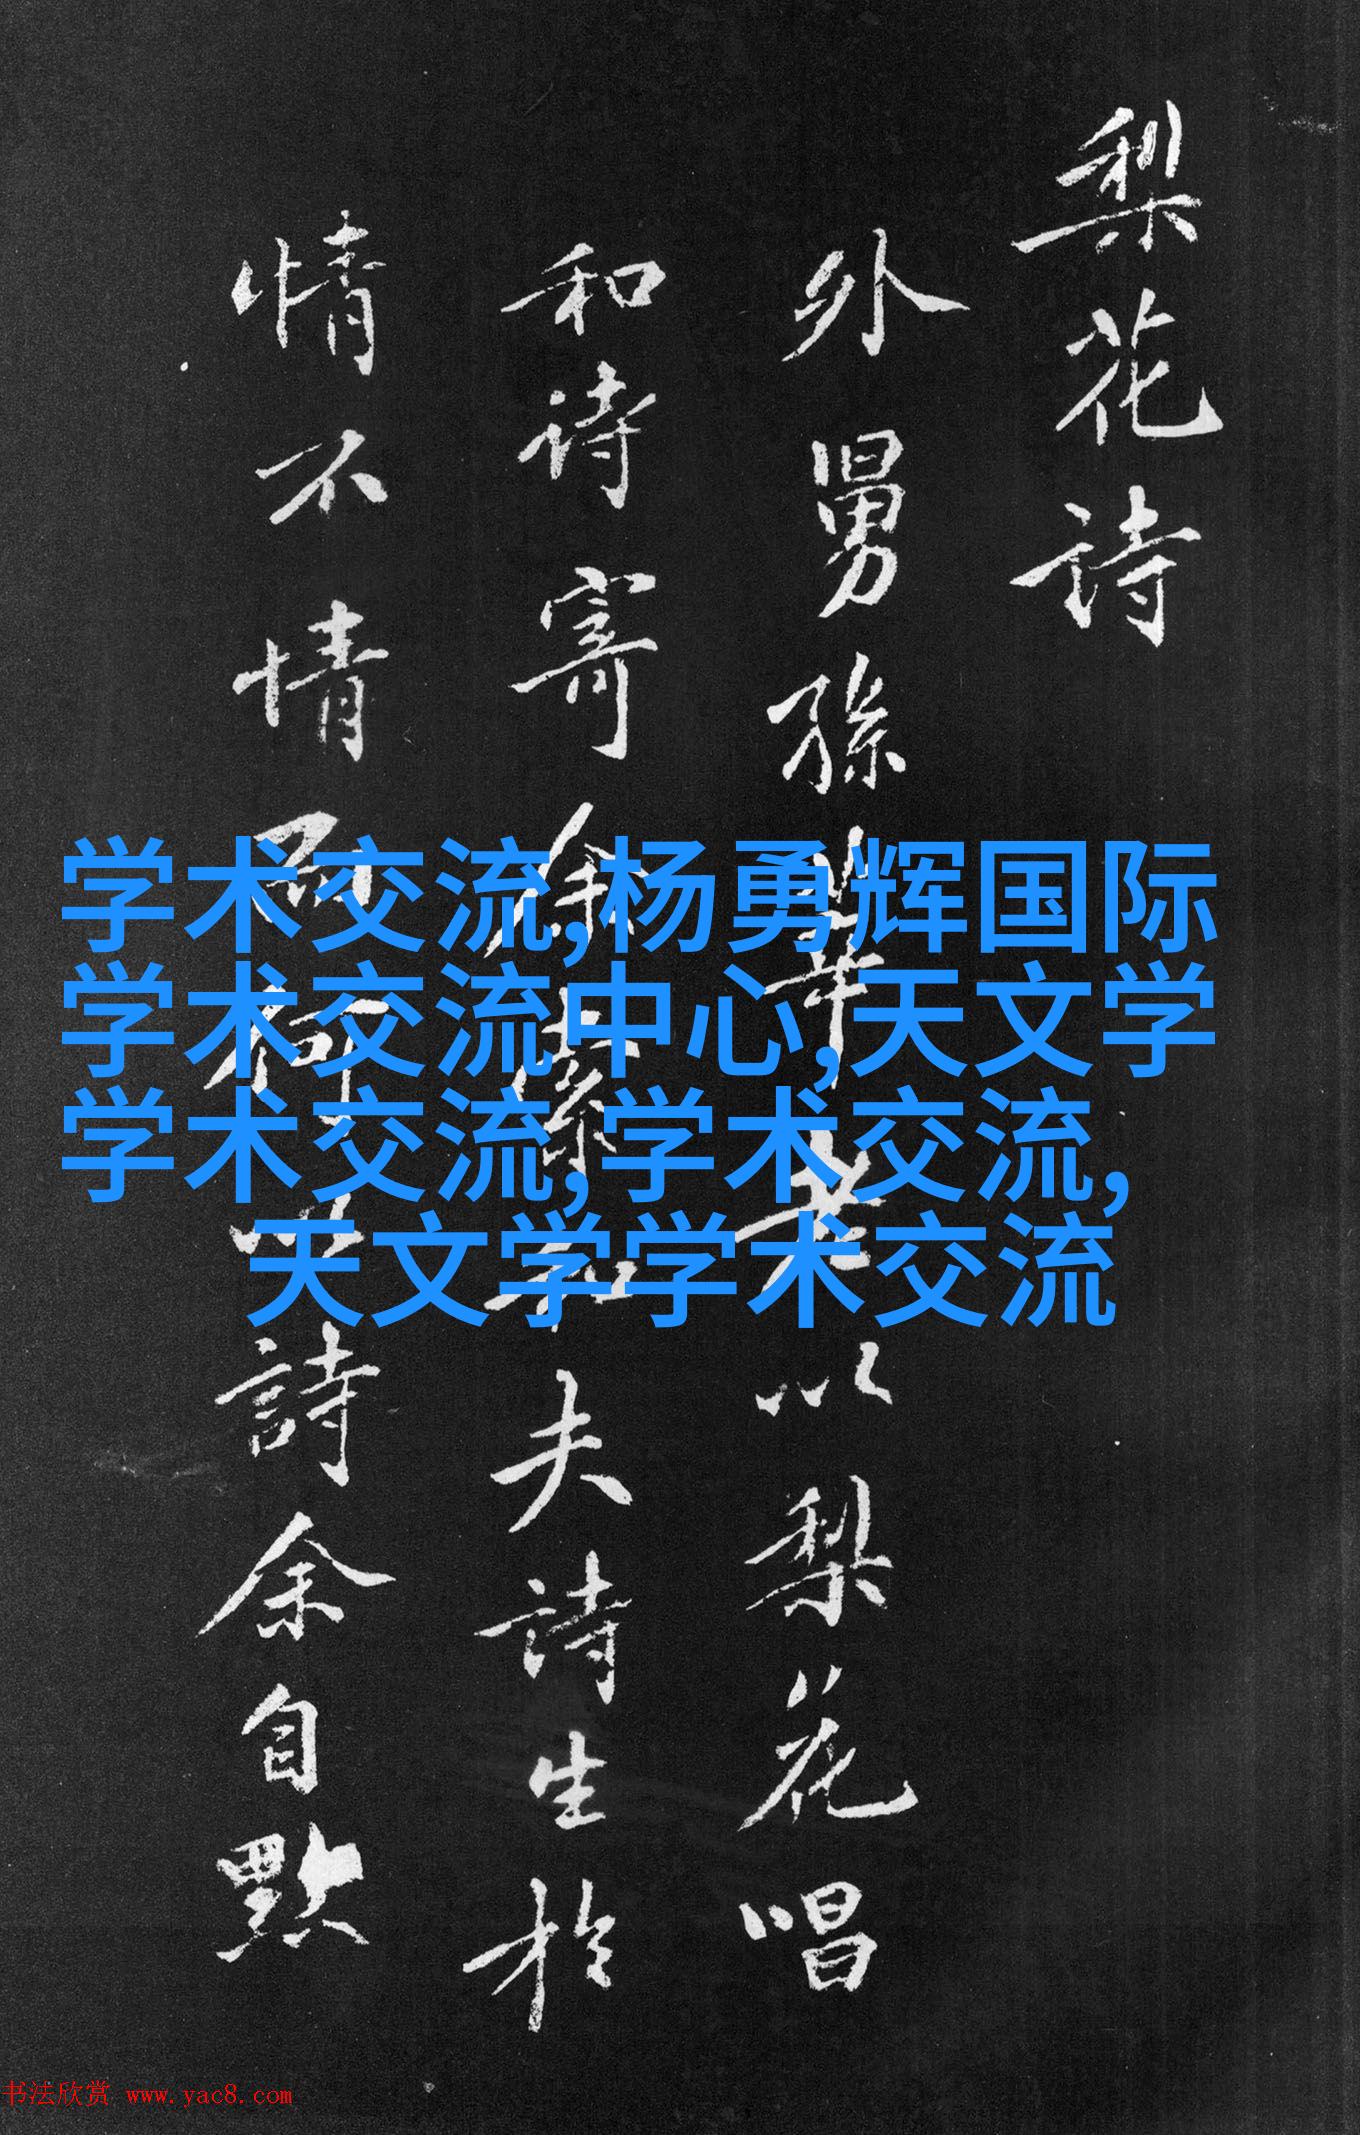 梨花詩
外舅孫莘老以梨花唱
和詩寄余和夫詩生於
情不情而何以詩余自點
学术交流,杨勇辉国际
学术交流中心,天文学
学术交流,学术交流,
天文学学术交流
书法欣赏 www.yac8.com